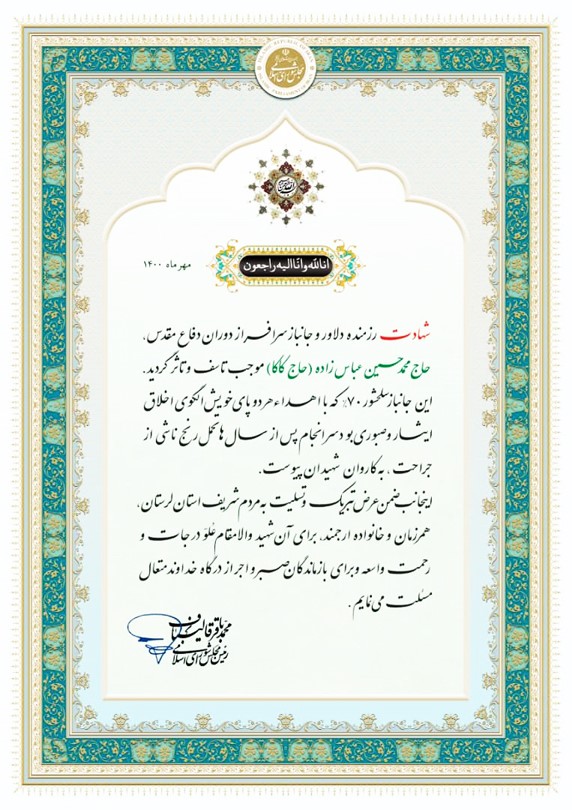 مجلس شورای اسلامی
بسم الله الرحمن الرحیم
انا لله وانا الیه راجعون
مهر ماه ۱۴۰۰
شهادت رزمنده دلاور و جانباز سرافراز دوران دفاع مقدس،
حاج محمدحسین عباس زاده (حاج کاکا) موجب تاسف و تاثر گردید.
این جانباز سلحشور ۷۰٪ که با اهداء هر دو پای خویش الگوی اخلاق
ایثار و صبوری بود سرانجام پس از سال ها تحمل رنج ناشی از
جراحت، به کاروان شهیدان پیوست.
اینجانب ضمن عرض تبریک و تسلیت به مردم شریف استان لرستان،
همرزمان و خانواده ارجمند، برای آن شهید والامقام علوّ درجات و
رحمت واسعه و برای بازماندگان صبر و اجر از درگاه خداوند متعال
مسئلت می نمایم.
محمدباقر قالیباف
رئیس مجلس شورای اسلامی